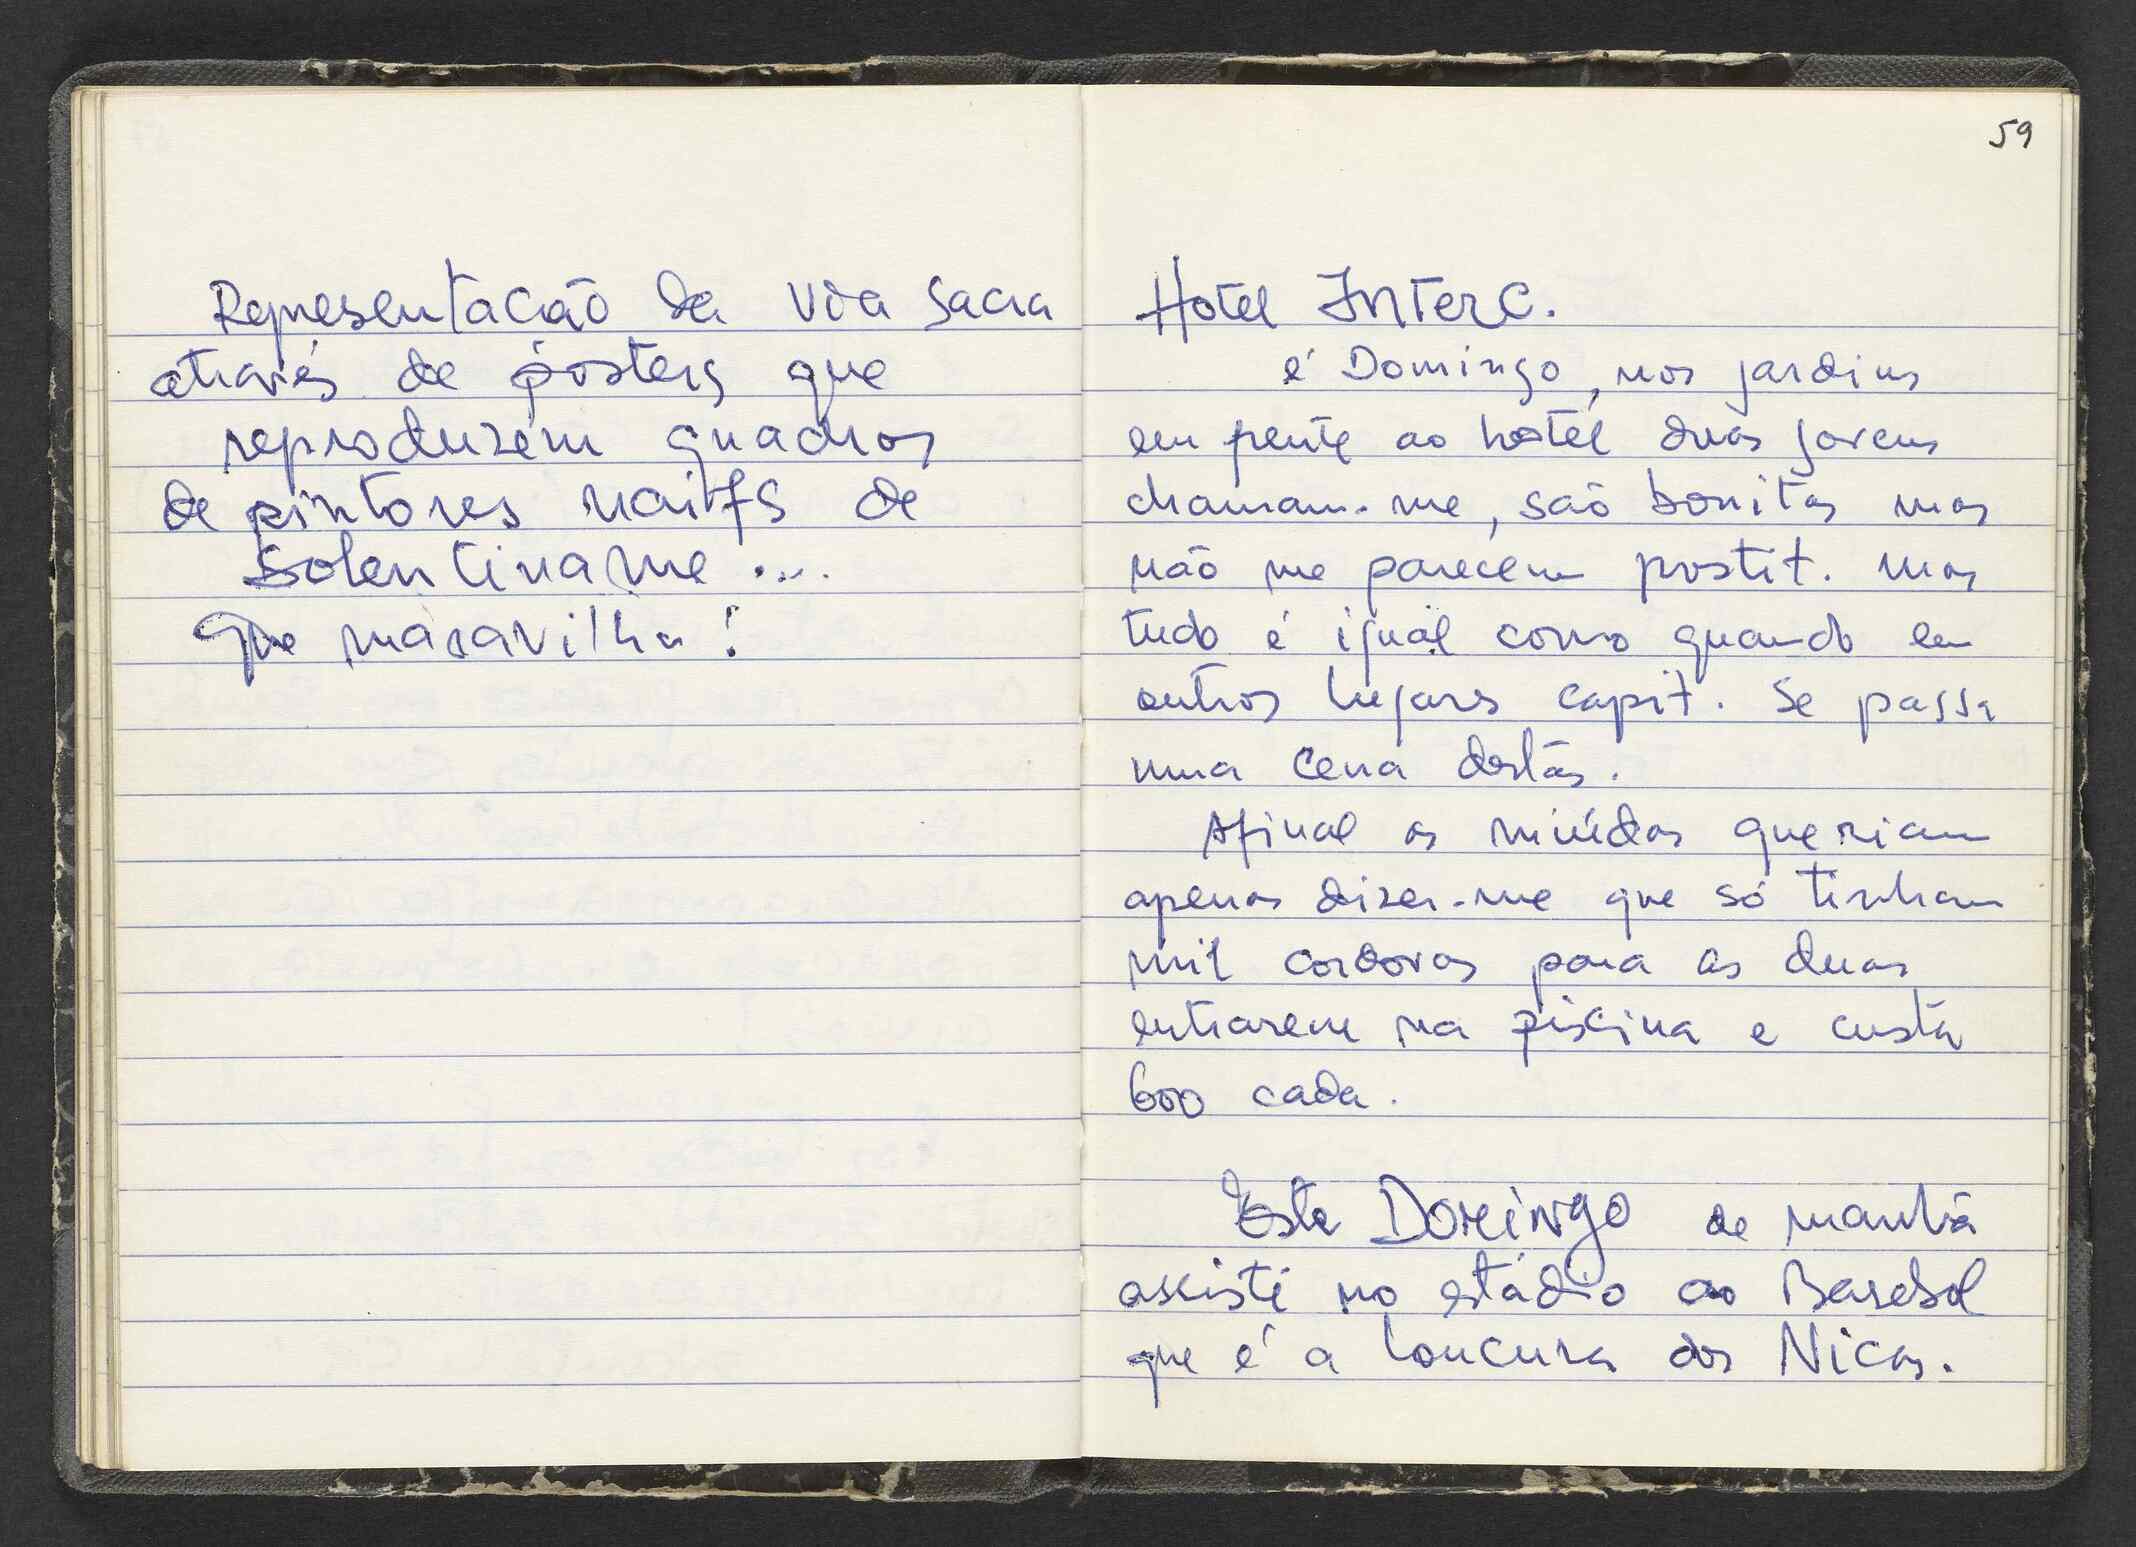 Representação da Via Sacra
através de posters que
reproduzem quadros
de pintores naifs de
Solentiname ...
Que maravilha!
59
Hotel Interc.
é Domingo, nos jardins
em frente ao hotel duas jovens
chamam-me, são bonitas mas
não me parecem postit. mas
tudo é igual como quando em
outros lugares capit. se passa
uma cena destas.
Afinal as miúdas queriam
apenas dizer-me que só tinham
mil cordovas para as duas
entrarem na piscina e custa
600 cada.
Este Domingo de manhã
assisti no estádio ao Basebol
que é a loucura dos Nicas.